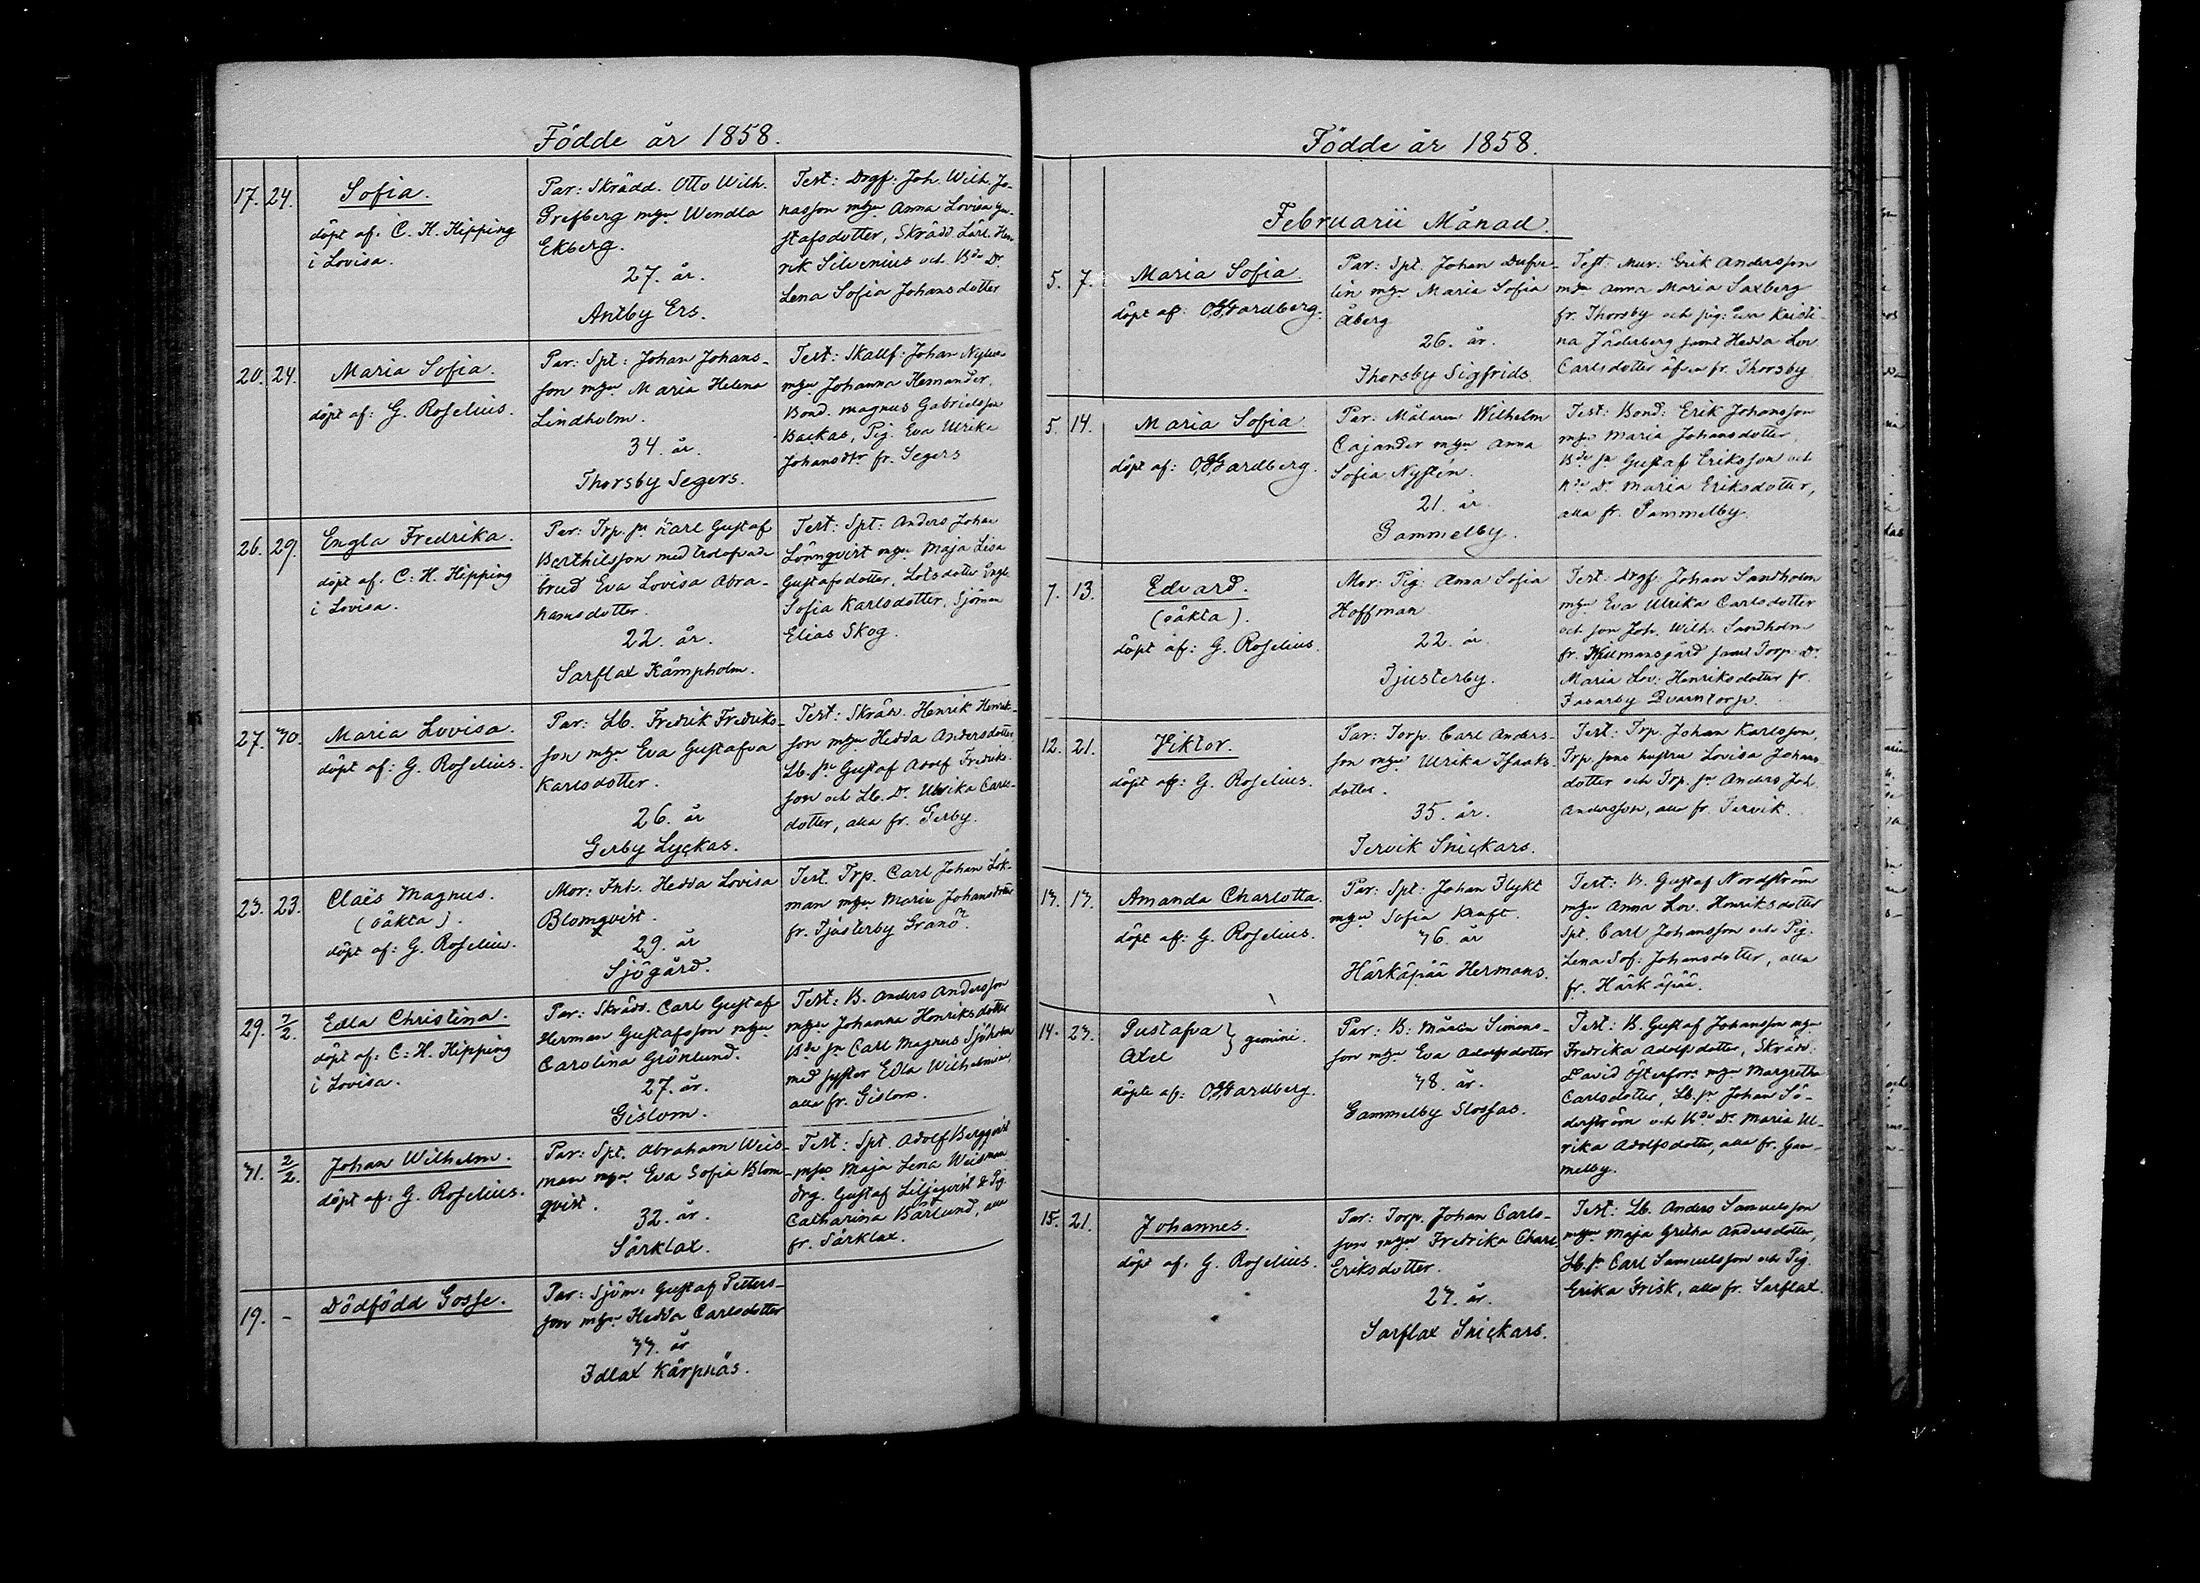 Födde år 1858.
17. 24.
Sofia.
döpt af: C. H. Hipping
i Lovisa.
Par: Skrädd. Otto Wilh.
Grefberg m hu Wendla
Ekberg.
27. år.
Antby Ers.
Test: Drgf: Joh. Wilh. Jo-
nasson m hu Anna Lovisa Gu-
stafsdotter, Skrädd Lärl. Hen
rik Silvenius och Bde Dr
Lena Sofia Johansdotter
20. 24.
Maria Sofia.
döpt af: G. Roselius.
Par: Spt: Johan Johans-
son m hu Maria Helena
Lindholm.
34. år.
Thorsby Segers.
Test: Skallf: Johan
m hu Johanna Hemander,
Bond. Magnus Gabrielsson
Backas, Pig. Eva Ulrika
Johansdtr fr. Segers
26. 29.
Engla Fredrika.
döpt af. C: H. Hipping
i Lovisa.
Par: Trp. sn Karl Gustaf
Berthilsson med trolofvade
brud Eva Lovisa Abra-
hamsdotter.
22. år.
Sarflax Kämpholm.
Test: Spt: Anders Johan
Lönnqvist m hu Maja Lisa
Gustafsdotter, Lotsdotter Engla
Sofia Karlsdotter, Sjöman
Elias Skog.
27. 30.
Maria Lovisa.
döpt af: G. Roselius.
Par: Lb. Fredrik Fredriks-
son m hu Eva Gustafva
Karlsdotter.
26. år
Gerby Lyckas.
Test: Skräd. Henrik Henrik-
son m hu Hedda Andersdotter
Lb. sn Gustaf Adolf Fredriks-
son och Lb. Dr Ulrika Carls-
dotter, alla fr. Gerby.
23. 23.
Claës Magnus.
(oäkta).
döpt af: G. Roselius.
Mor: Inh. Hedda Lovisa
Blomqvist.
29. år
Sjögård.
Test. Trp. Carl Johan Lök-
man m hu Maria Johansdotter
fr. Tjusterby Granö.
29. 2/2.
Edla Christina.
döpt af: C: H. Hipping
i Lovisa.
Par: Skrädd. Carl Gustaf
Herman Gustafsson m hu
Carolina Grönlund.
27. år.
Gislom.
Test: B. Anders Andersson
m hu Johanna Henriksdotter
Bde sn Carl Magnus Sjöholm
med syster Edla Wilhelmina,
alla fr. Gislom.
31. 2/2.
Johan Wilhelm.
döpt af: G. Roselius.
Par: Spt. Abraham Weis-
man m hu Eva Sofia Blom
qvist.
32. år.
Särklax.
Test: Spt. Adolf Bergqvist
m hu Maja Lena Weisman
Drg. Gustaf Liljeqvist & Pig.
Catharina Bärlund, alla
fr. Särklax.
19. -
Dödfödd Gosse.
Par: Sjöm: Gustaf Petters-
son m hu Hedda Carlsdotter
33. år
Idlax Kärpnäs.
Födde år 1858.
Februarii Månad.
5. 7.
Maria Sofia.
döpt af: O. G. Gardberg.
Par: Spt. Johan Dufve-
lin m hu Maria Sofia
Åberg
26. år.
Thorsby Sigfrids
Test: Mur: Erik Andersson
m hu Anna Maria Saxberg
fr. Thorsby och pig: Eva Kristi-
na Söderberg samt Hedda Lov.
Carlsdotter äfven fr. Thorsby
5. 14.
Maria Sofia
döpt af: O. G. Gardberg.
Par: Målaren Wilhelm
Cajander m hu Anna
Sofia Nystén.
21. år.
Gammelby.
Test: Bond: Erik Johansson
m hu Maria Johansdotter,
Bde sn Gustaf Eriksson och
Bde Dr Maria Eriksdotter,
alla fr. Gammelby.
7. 13.
Edvard.
(oäkta).
döpt af: G. Roselius.
Mor: Pig: Anna Sofia
Hoffman
22. år.
Tjusterby.
Test: Drgf: Johan Sandholm
m hu Eva Ulrika Carlsdotter
och son Joh. Wilh. Sandholm
fr. samt Torp. Dr
Maria Lov: Henriksdotter fr.
Fasarby Qvarntorp.
12. 21.
Viktor.
döpt af: G. Roselius.
Par: Torp. Carl Anders-
son m hu Ulrika Isaaks-
dotter.
35. år.
Tervik Snickars.
Test: Trp. Johan Karlsson,
Trp. sons hustru Lovisa Johans-
dotter och Trp. sn Anders Joh.
Andersson, alla fr. Tervik.
13. 13.
Amanda Charlotta.
döpt af: G. Roselius.
Par: Spt: Johan Flykt
m hu Sofia Kraft.
36. år
Härkäpää Hermans.
Test: B. Gustaf Nordström
m hu Anna Lov. Henriksdotter
Spt. Carl Johansson och Pig:
Lena Sof: Johansdotter, alla
fr. Härkäpää.
14. 23.
Gustafva } gemini.
Axel
döpte af: O. G. Gardberg.
Par: B: Mårten Simons-
son m hu Eva Adolfsdotter
38. år.
Gammelby Slossas.
Test: B. Gustaf Johansson m hu
Fredrika Adolfsdotter, Skrädd.
David Österfors m hu Margretha
Carlsdotter, Lb. sn Johan Sö-
derström och Bde Dr Maria Ul-
rika Adolfsdotter, alla fr. Gam-
melby.
15. 21.
Johannes.
döpt af: G. Roselius.
Par: Torp. Johan Carls-
son m hu Fredrika Charl
Eriksdotter.
23. år.
Sarflax Snickars.
Test: Lb. Anders Samuelsson
m hu Maja Gretha Andersdotter,
Lb. sn Carl Samuelsson och Pig.
Erika Frisk, alla fr. Sarflax.